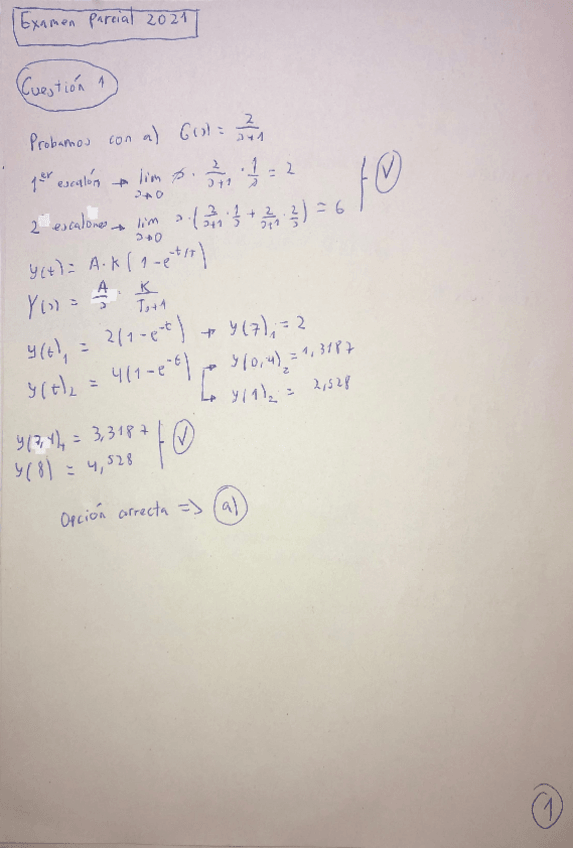 Examen Parcial 2021
Cuestión 1
Probamos con a) G(s) = 2/(s+1)
1er escalón → lim s→0 s · 2/(s+1) · 1/s = 2
2 escalones → lim s→0 s · (2/(s+1) · 1/s + 2/(s+1) · 2/s) = 6
y(t) = A·K(1-e^-t/τ)
Y(s) = A/s · K/(Ts+1)
y(t)1 = 2(1-e^-t) → y(7)1 = 2
y(t)2 = 4(1-e^-t) → y(0,4)2 = 1,3187
→ y(1)2 = 2,528
y(7,4) = 3,3187
y(8) = 4,528
Opción correcta => a)
1